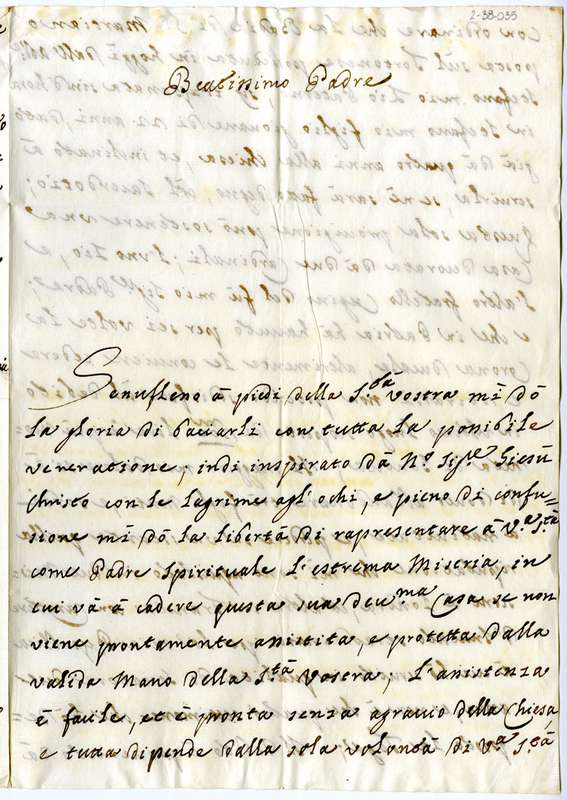 2-38-035
Beatissimo Padre
Genuflesso à piedi della S.tà Vostra mi dò
la gloria di bacciarli con tutta la possibile
veneratione; indi inspirato dà N.o Sig.re Giesù
Christo con le lagrime agl'ochi, e pieno di confu=
sione mi dò la libertà di rapresentare à V.a S.tà
come Padre Spirituale l'estrema Miseria, in
cui và à cadere questa sua deu.ma Casa se non
viene prontamente assistita, e protetta dalla
valida Mano della S.tà Vostra; l'assistenza
è facile, et è pronta senza agravio della Chiesa,
e tutta dipende dalla sola volontà di V.a S.tà